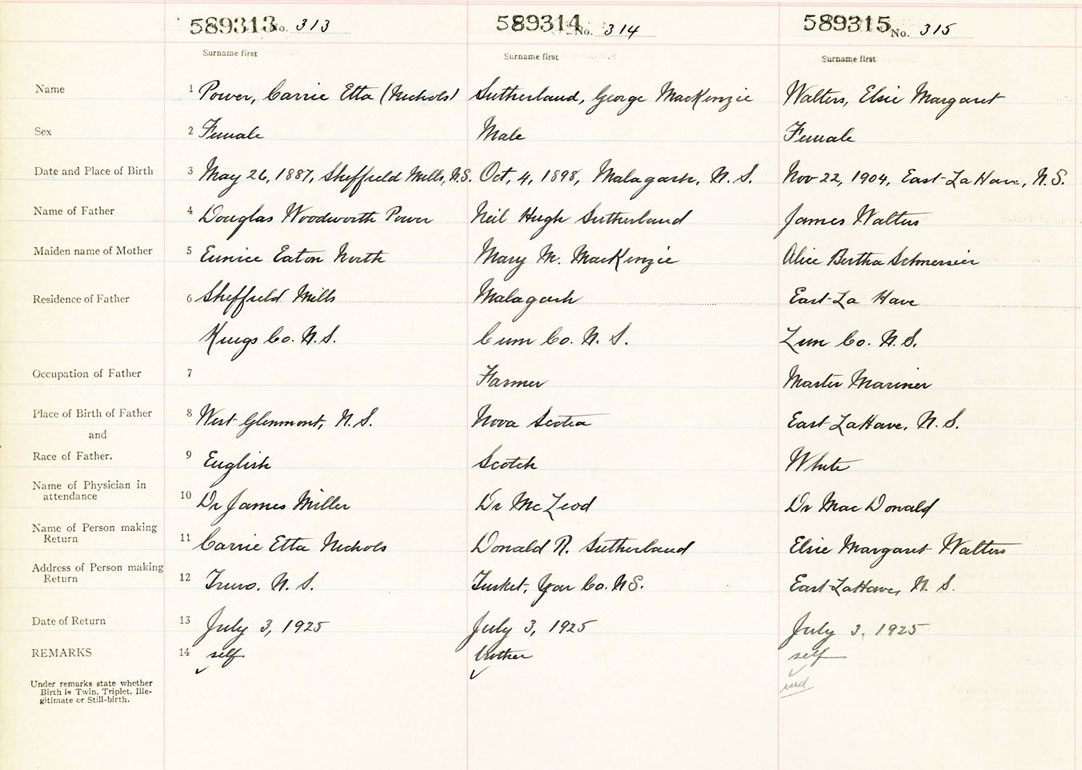 589313 No. 313 589314 No. 314 589315 No. 315
Surname first Surname first Surname first
Name 1 Power, Carrie Etta (Nichols) Sutherland, George MacKenzie Walters, Elsie Margaret
Sex 2 Female Male Female
Date and Place of Birth 3 May 26, 1887, Sheffield Mills, N.S. Oct, 4, 1898, Malagash, N. S. Nov 22, 1904, East LaHave, N.S.
Name of Father 4 Douglas Woodworth Power Neil Hugh Sutherland James Walters
Maiden name of Mother 5 Eunice Eaton North Mary M. MacKenzie Alice Bertha
Residence of Father 6 Sheffield Mills Malagash East La Have
Kings Co. N.S. Cum Co. N. S. Lun Co. N.S.
Occupation of Father 7 Farmer Master Mariner
Place of Birth of Father 8 West Glenmont, N.S. Nova Scotia East LaHave, N.S.
and
Race of Father. 9 English Scotch White
Name of Physician in
attendance 10 Dr James Miller Dr McLeod Dr Mac Donald
Name of Person making
Return 11 Carrie Etta Nichols Donald R. Sutherland Elsie Margaret Walters
Address of Person making
Return 12 Truro. N.S. Tusket, Yar Co. N.S. East LaHave, N.S.
Date of Return 13 July 3, 1925 July 3, 1925 July 3, 1925
REMARKS 14 self self
Under remarks state whether
Birth is Twin, Triplet, Ille-
gitimate or Still-birth.